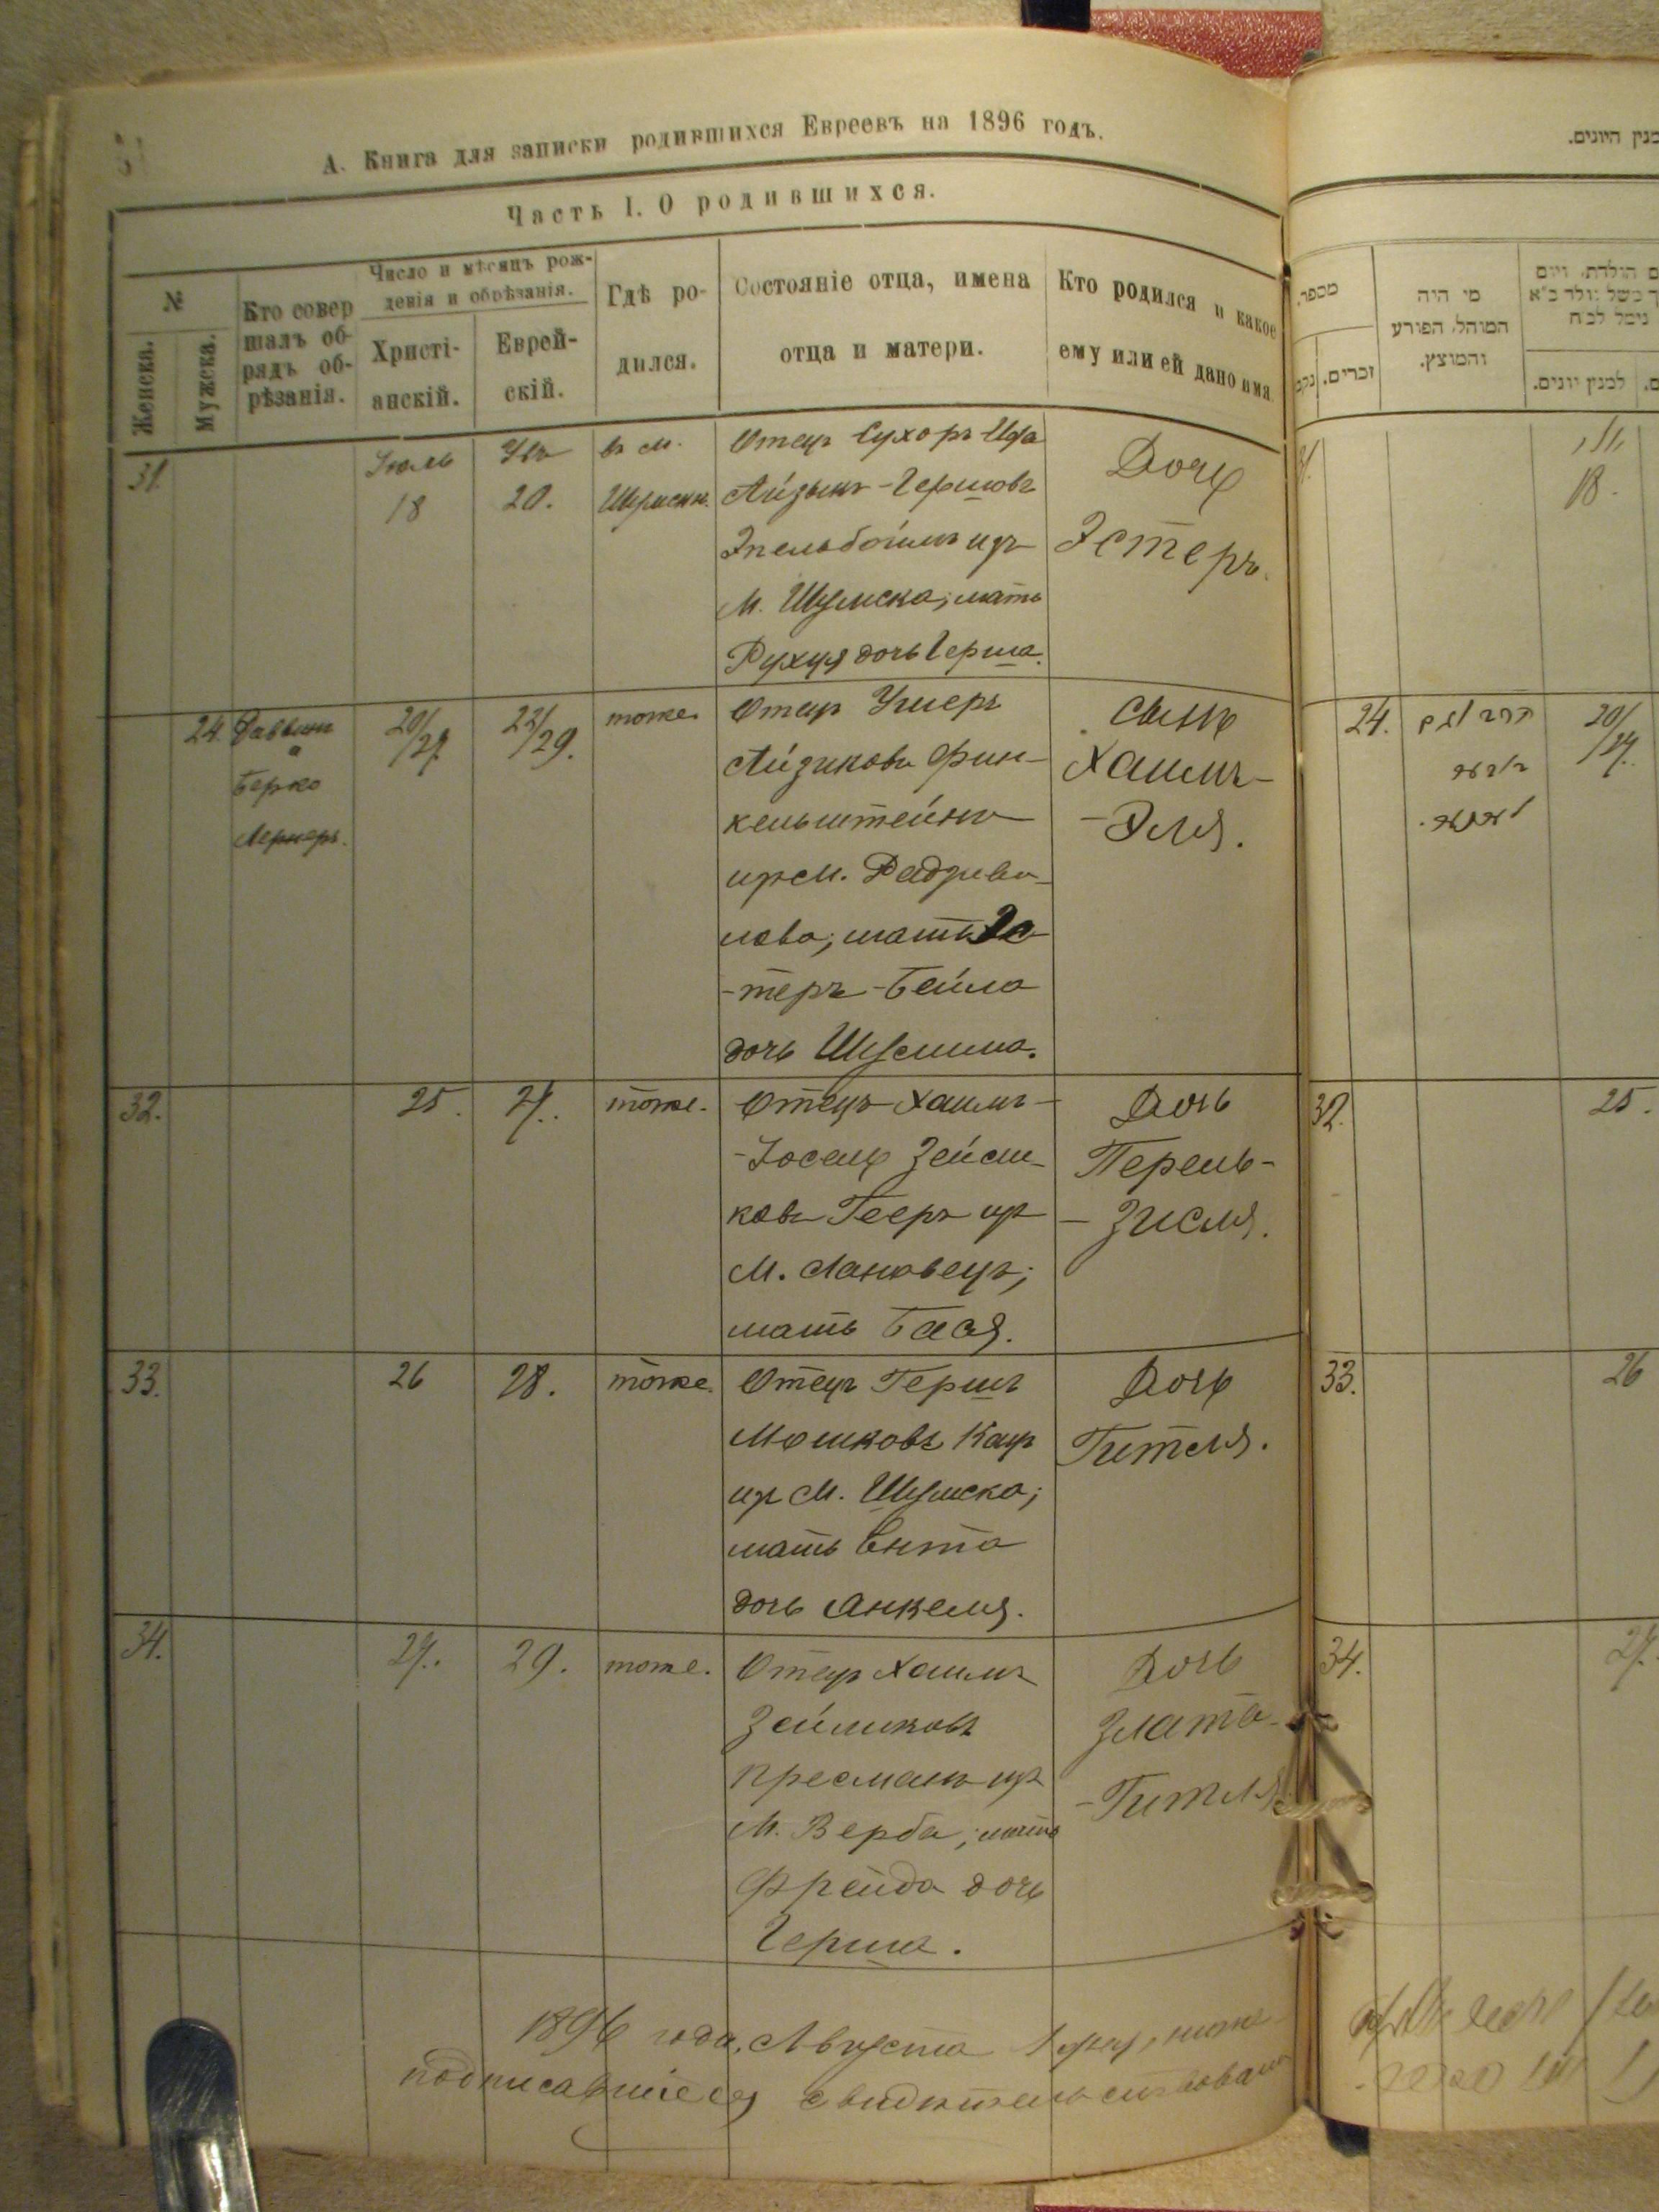 А. Книга для записки родившихся Евреевъ на 1896 годъ.
Часть I. О родившихся.
№
Женска.
Мужска.
Кто совер
шалъ об-
рядъ об-
рѣзанія.
Число и мѣсяцъ рож-
денія и обрѣзанія.
Христі-
анскій.
Еврей-
скій.
Гдѣ ро-
дился.
Состояніе отца, имена
отца и матери.
Кто родился и какое
ему или ей дано имя.
31.
Іюль
18
20.
въ м.
Шумскѣ.
Отецъ Сухоръ-Ица
Айзыкъ-Гершовъ
Эпельбоймъ изъ
м. Шумска; мать
Рухця дочь Герша.
Дочь
Эстеръ.
24.
Раввинъ
Берко
Лернеръ.
20/27.
22/29.
тоже.
Отецъ Ушеръ
Айзиковъ Фин-
кельштейнъ
изъ м. Радзиви-
лова; мать Эс-
-теръ-Бейла
дочь Шулима.
Сынъ
Хаимъ-
-Эля.
32.
25.
27.
тоже.
Отецъ Хаимъ-
-Іосель Зейли-
ковъ Гееръ изъ
м. Лановецъ;
мать Бася.
Дочь
Перель-
-Зисля.
33.
26
28.
тоже.
Отецъ Гершъ
Мошковъ Кацъ
изъ м. Шумска;
мать Ента
дочь Анкеля.
Дочь
Гителя.
34.
27.
29.
тоже.
Отецъ Хаимъ
Зейликовъ
Пресманъ изъ
м. Верба; мать
Фрейда дочь
Герша.
Дочь
Злата-
-Гитля
1896 года, Августа 1 дня, ниже-
подписавшіеся свидѣтельствовали
למנין היונים.
מספר.
זכרים.
מי היה
המוהל, הפורע
והמוצץ.
למנין יונים.
31.
18.
24.
20/27.
32.
25.
33.
26
34.
27.